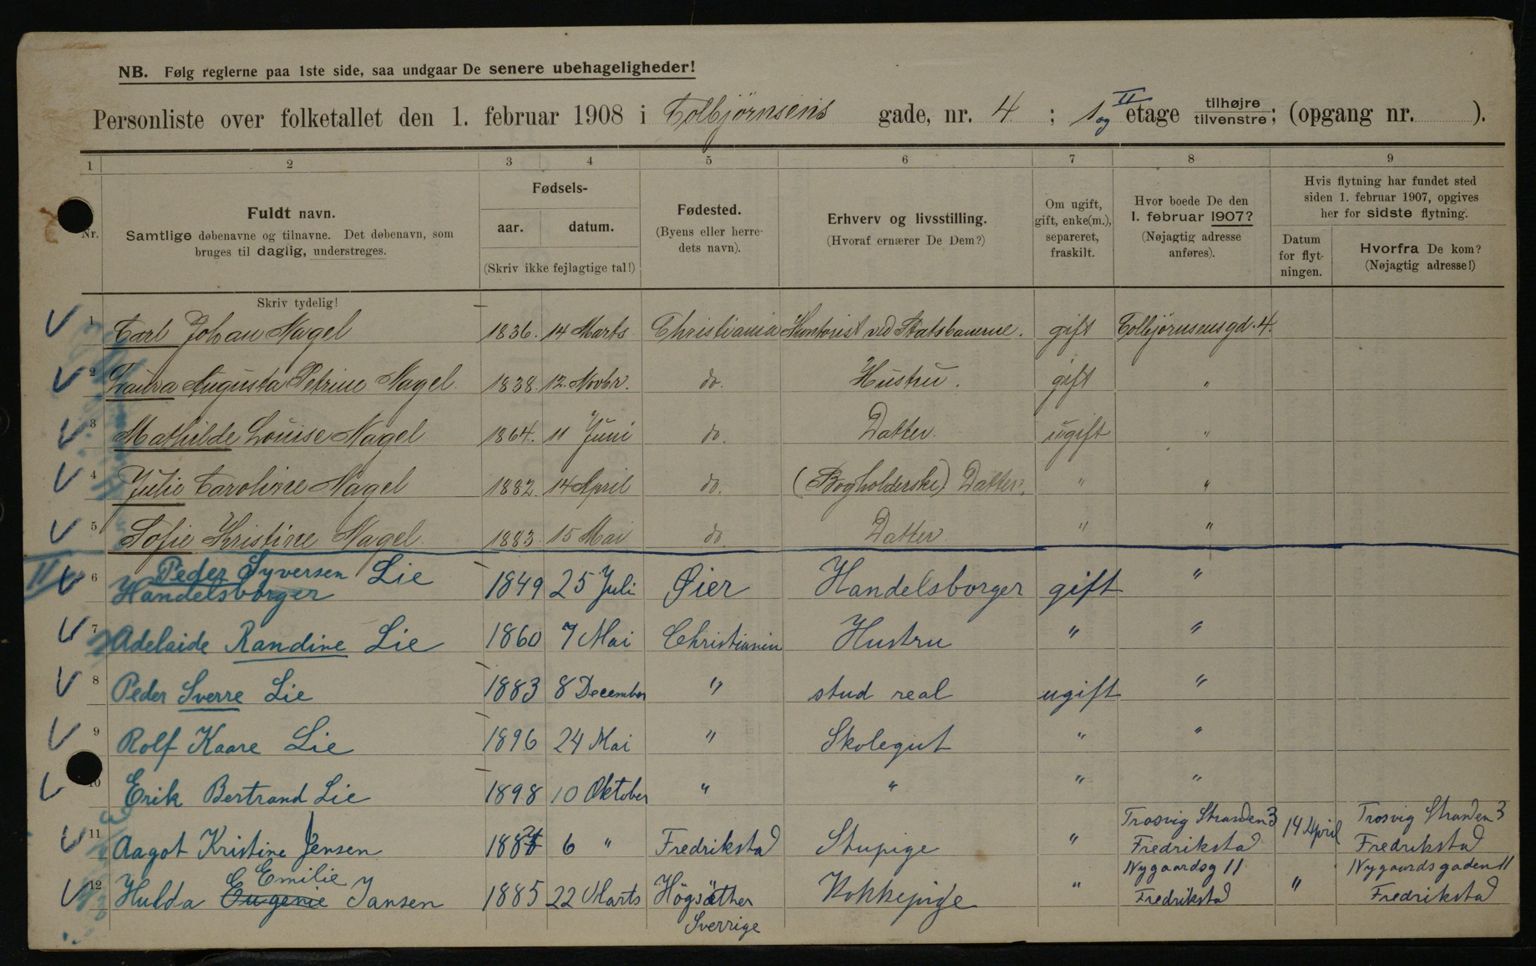 NB. Følg reglerne paa 1ste side, saa undgaar De senere ubehageligheder!
Personliste over folketallet den 1. februar 1908 i Tolbjörnsens gade, nr. 4 ; 1 og II etage tilhøjre tilvenstre; (opgang nr. ).
1 2 3 4 5 6 7 8 9
Nr.
Fuldt navn.
Samtlige døbenavne og tilnavne. Det døbenavn, som
bruges til daglig, understreges.
Fødsels-
aar. datum.
(Skriv ikke fejlagtige tal!)
Fødested.
(Byens eller herre-
dets navn).
Erhverv og livsstilling.
(Hvoraf ernærer De Dem?)
Om ugift,
gift, enke(m.),
separeret,
fraskilt.
Hvor boede De den
1. februar 1907?
(Nøjagtig adresse
anføres).
Hvis flytning har fundet sted
siden 1. februar 1907, opgives
her for sidste flytning.
Datum
for flyt-
ningen.
Hvorfra De kom?
(Nøjagtig adresse!)
Skriv tydelig!
1 Carl Johan Nagel 1836. 14 Marts Christiania Kontorist ved Statsbanerne. gift Tolbjörnsensgd. 4.
2 Laura Augusta Petrine Nagel 1838. 12. Novbr. do. Hustru. gift "
3 Mathilde Louise Nagel 1864. 11 Juni do. Datter. ugift "
4 Julie Caroline Nagel 1882 14 April do. (Bogholderske) Datter. " "
5 Sofie Kristine Nagel 1883 15 Mai do. Datter " "
II
6 Peder Syversen Lie Handelsborger 1849 25 Juli Øier Handelsborger gift "
7 Adelaide Randine Lie 1860 7 Mai Christiania Hustru " "
8 Peder Sverre Lie 1883 8 December " stud real ugift "
9 Rolf Kaare Lie 1896 24 Mai " Skolegut " "
10 Erik Bertrand Lie 1898 10 Oktober " " " "
11 Aagot Kristine Jensen 188 6 " Fredrikstad Stupige " Trosvig Stranden 3 Fredrikstad 14 April Trosvig Stranden 3 Fredrikstad
12 Hulda Eugenie Emilie Jansen 1885 22 Marts Högsäther Sverrige Kokkepige " Nygaardsg 11 Fredrikstad " Nygaardsgaden 11 Fredrikstad